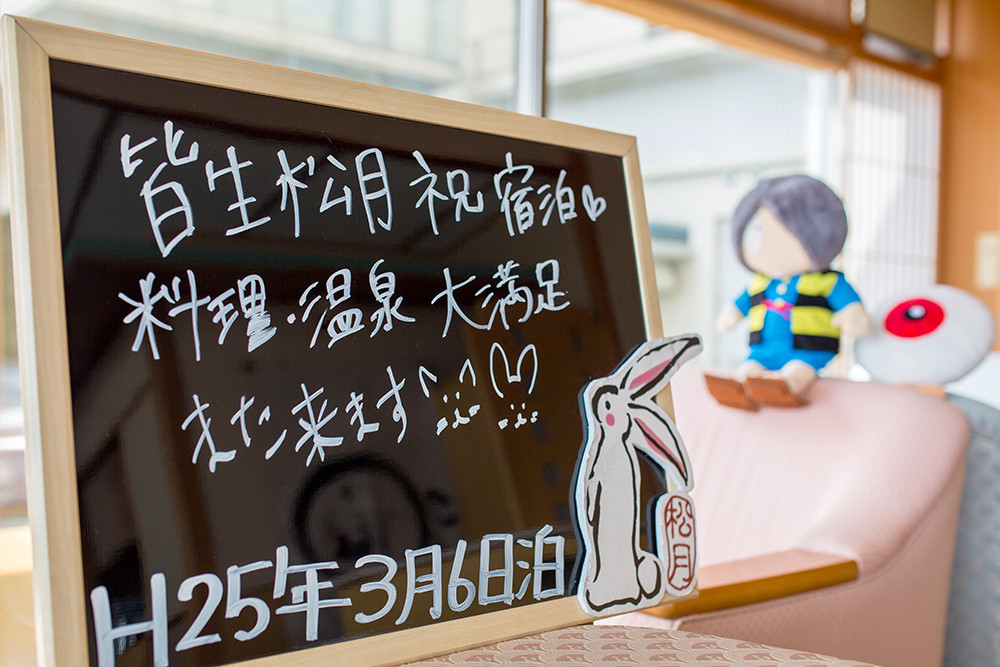 皆生松月祝宿泊♡
料理・温泉大満足
また来ます
H25年3月6日泊
松月